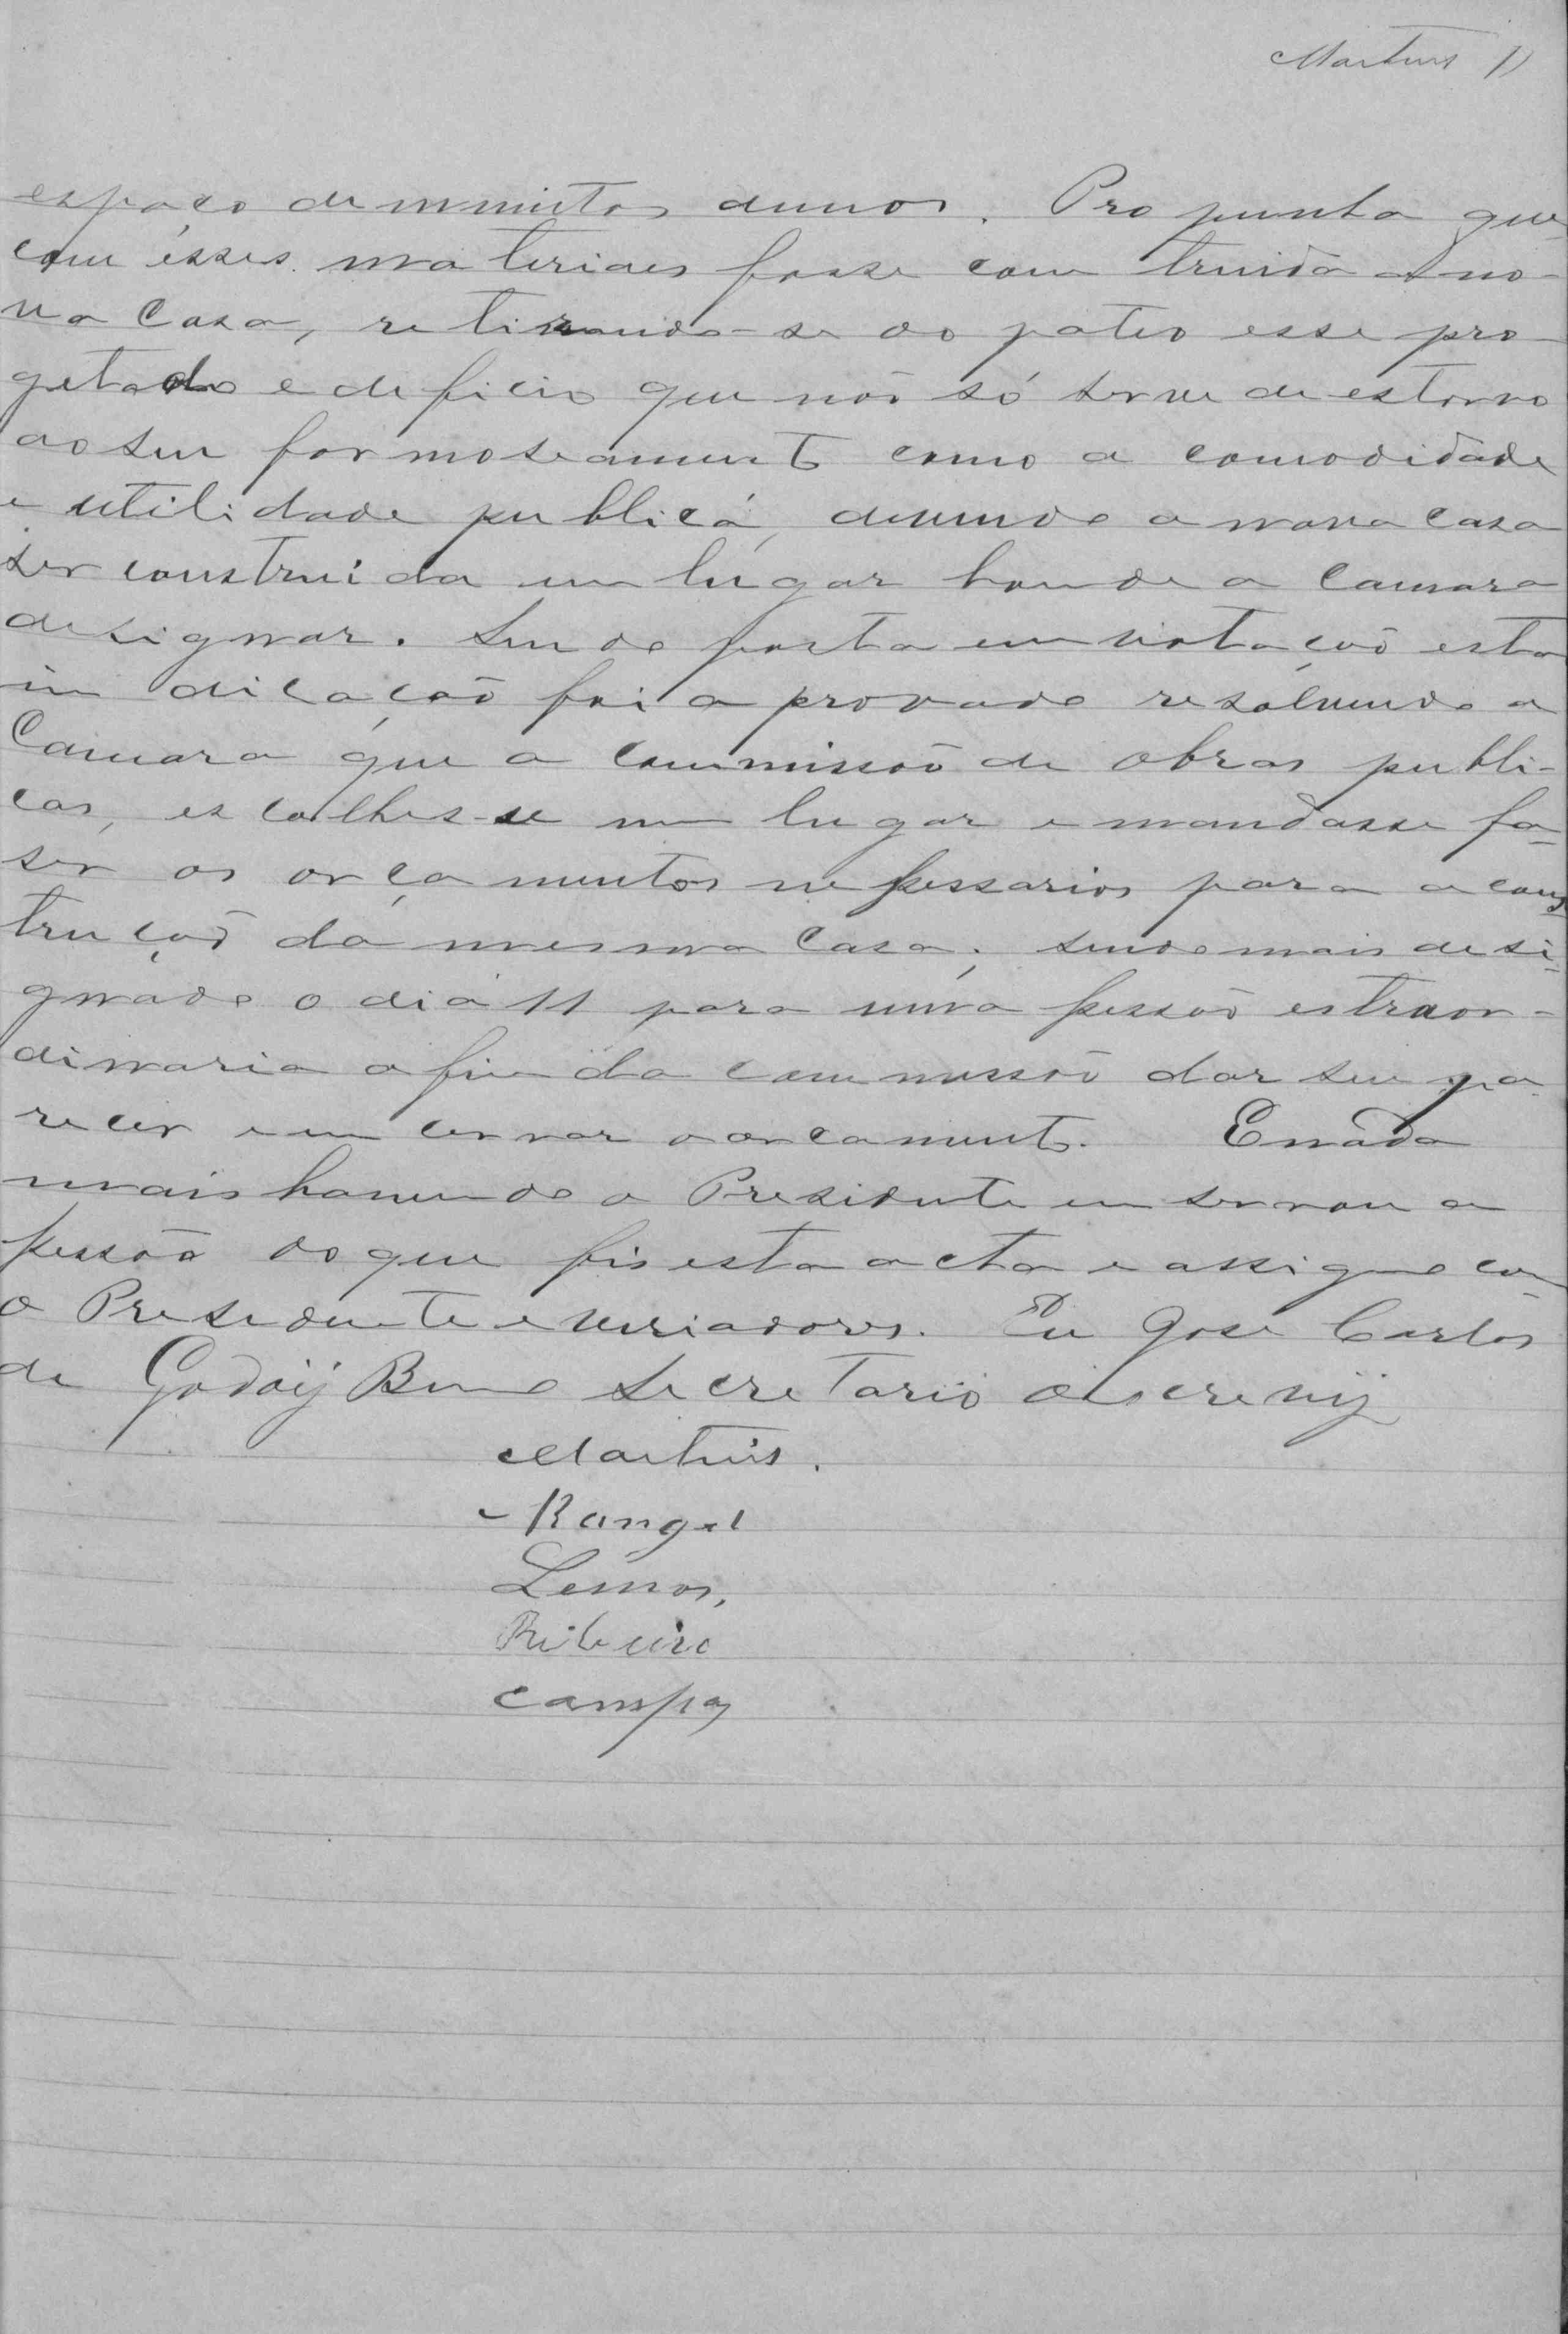 Martins 11
espaço de muintos annos. Propunha que
com esses materiaes fosse comtruida a no-
va Casa, retirando-se do pateo esse pro-
getado edeficio que não só serve de estorvo
ao seu formoseamento como a comodidade
e utilidade publica, devendo a nova casa
ser construida em lugar honde a Camara
designar. Sendo posta em votação esta
indicação foi aprovado resolvendo a
Camara que a Commissão de obras publi-
cas, escolhes-se um lugar e mandasse fa-
ser os orçamentos nessessarios para a cons
trução da mesma Casa; sendo mais desi-
gnado o dia 11 para uma sessão estraor-
dinaria afim da commissão dar seu pa
recer e em cerrar o orcamento. E nada
mais havendo o Presidente em serrou a
sessão do que fis esta acta e assigno com
o Presedente e veriadores. Eu José Carlos
de Godoij Bueno Secretario o escrevij
Martins.
Rangel
Lemos,
Ribeiro
Campos